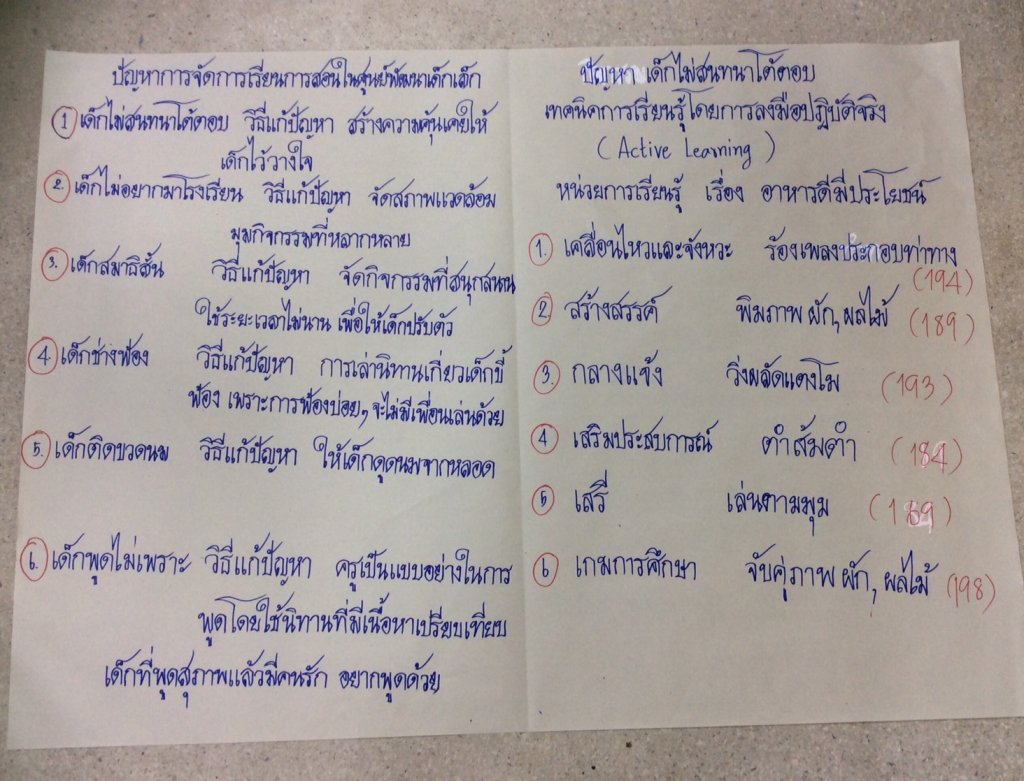 ปัญหาการจัดการเรียนการสอนในศูนย์พัฒนาเด็กเล็ก
1 เด็กไม่สนทนาโต้ตอบ วิธีแก้ปัญหา สร้างความคุ้นเคยให้
เด็กไว้วางใจ
2. เด็กไม่อยากมาโรงเรียน วิธีแก้ปัญหา จัดสภาพแวดล้อม
มุมกิจกรรมที่หลากหลาย
3. เด็กสมาธิสั้น วิธีแก้ปัญหา จัดกิจกรรมที่สนุกสนาน
ใช้ระยะเวลาไม่นาน เพื่อให้เด็กปรับตัว
4. เด็กช่างฟ้อง วิธีแก้ปัญหา การเล่านิทานเกี่ยวเด็กขี้
ฟ้อง เพราะการฟ้องบ่อยๆ จะไม่มีเพื่อนเล่นด้วย
5. เด็กติดขวดนม วิธีแก้ปัญหา ให้เด็กดูดนมจากหลอด
6. เด็กพูดไม่เพราะ วิธีแก้ปัญหา ครูเป็นแบบอย่างในการ
พูดโดยใช้นิทานที่มีเนื้อหาเปรียบเทียบ
เด็กที่พูดสุภาพแล้วมีคนรัก อยากพูดด้วย
ปัญหา เด็กไม่สนทนาโต้ตอบ
เทคนิคการเรียนรู้โดยการลงมือปฏิบัติจริง
( Active Learning )
หน่วยการเรียนรู้ เรื่อง อาหารดีมีประโยชน์
1. เคลื่อนไหวและจังหวะ ร้องเพลงประกอบท่าทาง
(194)
2 สร้างสรรค์ พิมภาพ ผัก, ผลไม้ (189)
3. กลางแจ้ง วิ่งผลัดแตงโม (193)
4 เสริมประสบการณ์ ตำส้มตำ (184)
5 เสรี เล่นตามมุม (189)
6 เกมการศึกษา จับคู่ภาพ ผัก, ผลไม้ (198)